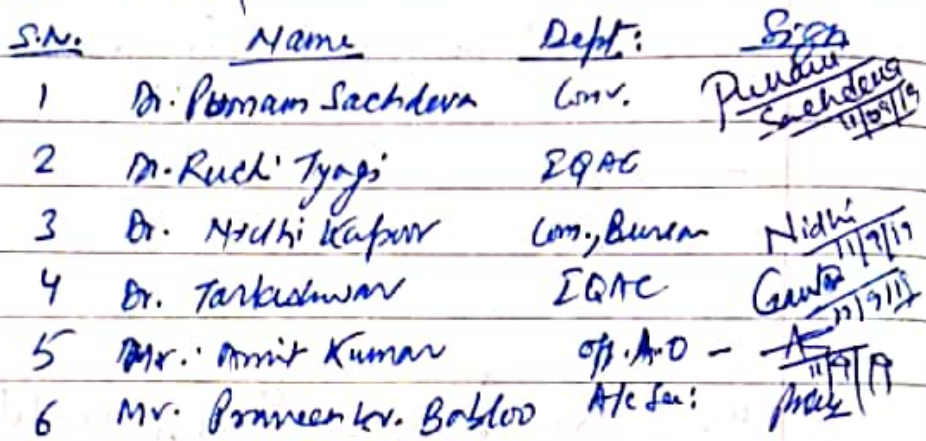 S.N. Name Deptt: Sign
1 Dr. Poonam Sachdeva Conv. Punam Sachdeva 11/09/19
2 Dr. Ruchi Tyagi IQAC
3 Dr. Nidhi Kapoor Com., Bureau Nidhi 11/9/19
4 Dr. Tarkeshwar IQAC 11/9/19
5 Mr. Amit Kumar Off. A.O - 11/9/19
6 Mr. Praveen Kr. Babloo A/c Sec: